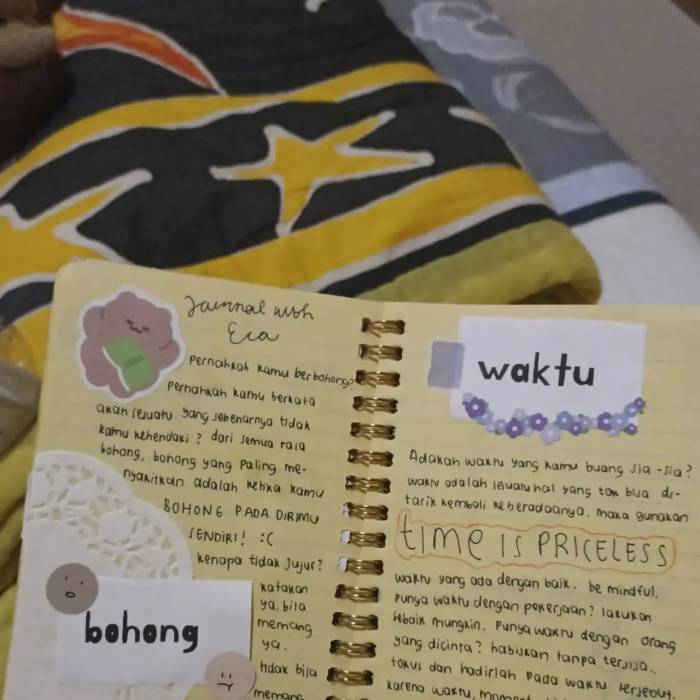 Journal with
Eca
pernahkah kamu berbohong?
pernahkah kamu berkata
akan sesuatu yang sebenarnya tidak
kamu kehendaki? dari semua rasa
bohong, bohong yang paling me-
nyakitkan adalah ketika kamu
BOHONG PADA DIRIMU
SENDIRI! :(
kenapa tidak jujur?
katakan
ya, bila
memang
ya.
tidak bila
memang
bohong
waktu
Adakah waktu yang kamu buang sia-sia?
waktu adalah sesuatu hal yang tak bisa di-
tarik kembali keberadaanya. maka gunakan
time IS PRICELESS
waktu yang ada dengan baik. be mindful.
punya waktu dengan pekerjaan? lakukan
sebaik mungkin. punya waktu dengan orang
yang dicinta? habiskan tanpa tersisa..
fokus dan hadirlah pada waktu tersebut.
karena waktu,